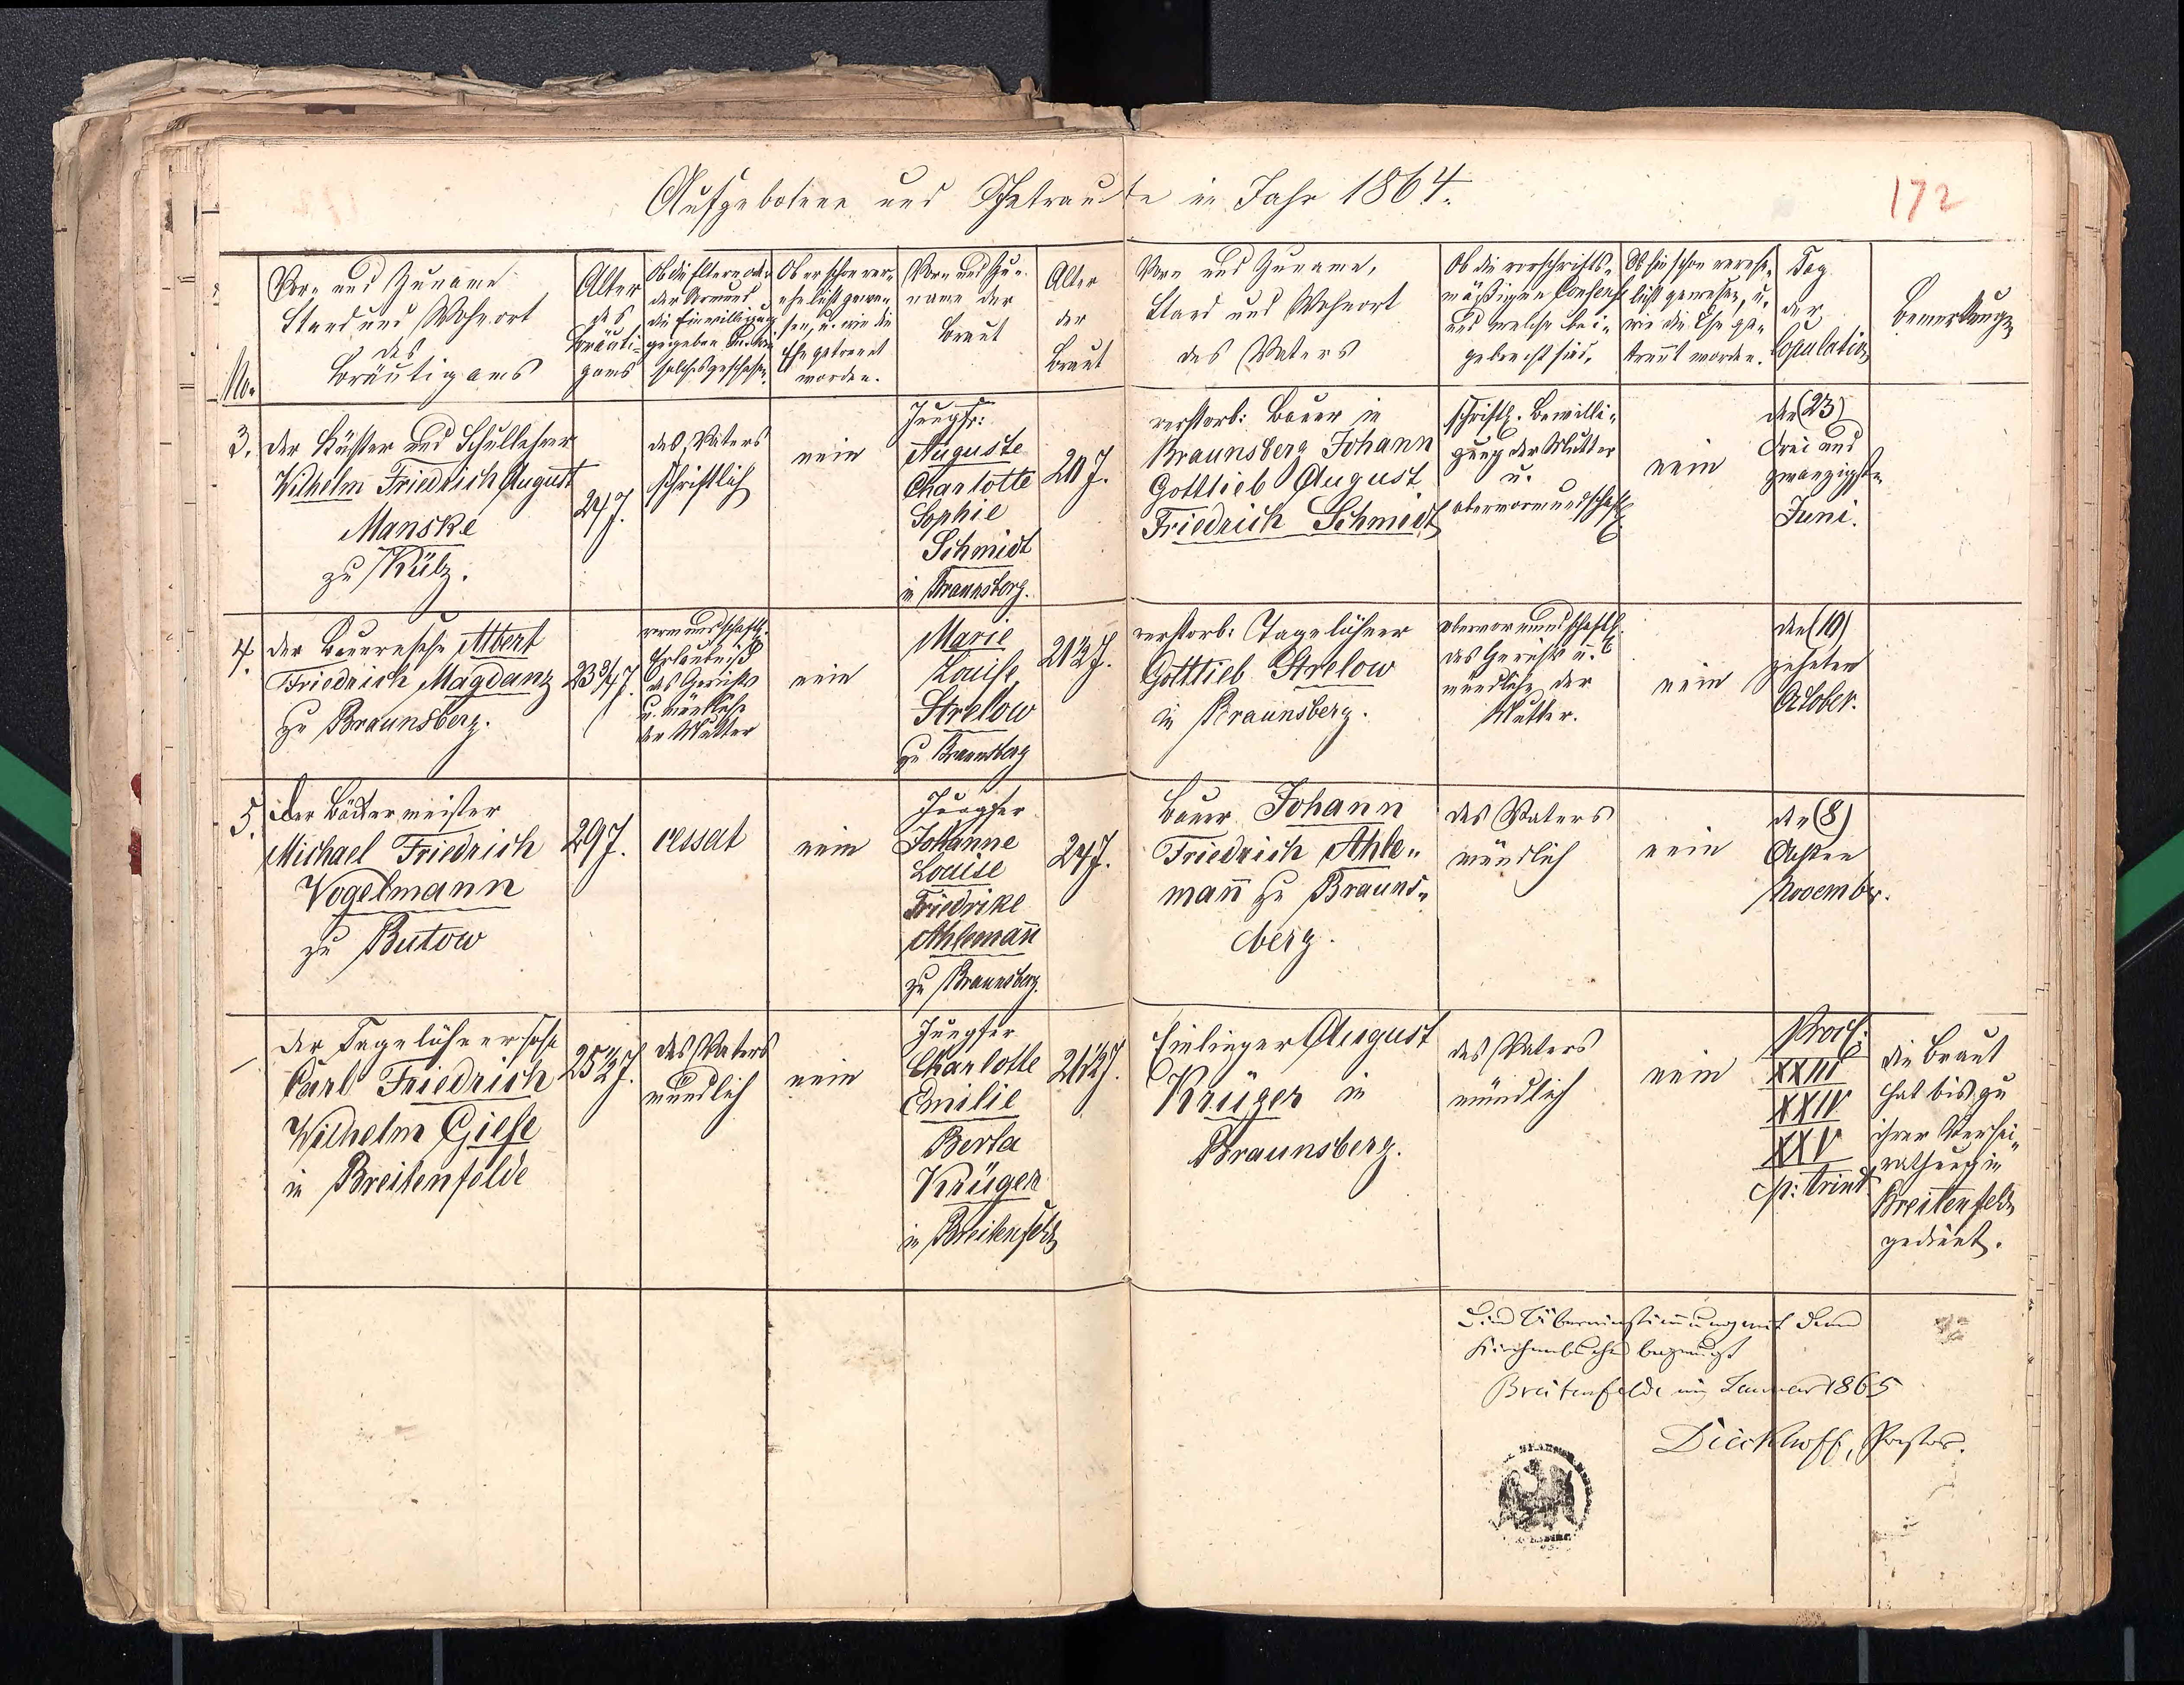 Aufgebotene und Getraute im Jahr 1864.
172
No.
Vor- und Zuname
Stand und Wohnort
des
Bräutigams
Alter
des
Bräuti-
gams
Ob die Eltern oder
der Vormund
die Einwilligung
gegeben u. wie
solches geschehen.
Ob er schon ver-
ehelicht gewe-
sen, u. wie die
Ehe getrennt
worden.
Vor- und Zu-
name der
Braut
Alter
der
Braut
Vor- und Zuname,
Stand und Wohnort
des Vaters
Ob die vorschrifts-
mäßigen Consense
und welche bei-
gebracht sind.
Ob sie schon verehe-
licht gewesen, u.
wie die Ehe ge-
trennt worden.
Tag
der
Copulation
Bemerkungen
3.
der Küster und Schullehrer
Wilhelm Friedrich August
Manske
zu Külz.
24 J.
des Vaters
schriftlich
nein
Jungfr:
Auguste
Charlotte
Sophie
Schmidt
in Braunsberg.
20 J.
verstorb: Bauer in
Braunsberg Johann
Gottlieb August
Friedrich Schmidt
schriftl. Bewilli-
gung der Mutter
u.
obervormundschaftl.
nein
den (23)
drei und
zwanzigsten
Juni.
4.
der Bauernsohn Albert
Friedrich Magdanz
zu Braunsberg.
23 3/4 J.
vormundschaftl.
Erlaubniß
des Gerichts
u. mündliche
der Mutter
nein
Marie
Louise
Strelow
zu Braunsberg
21 1/2 J.
verstorb: Tagelöhner
Gottlieb Strelow
in Braunsberg.
obervormundschaftl.
des Gerichts u.
mündliche der
Mutter.
nein
den (10)
zehnten
October.
5.
der Bäckermeister
Michael Friedrich
Vogelmann
zu Butow
29 J.
cessat
nein
Jungfer
Johanne
Louise
Friedrike
Ahlemañ
zu Braunsberg.
24 J.
Bauer Johann
Friedrich Ahle-
mañ zu Brauns-
berg.
des Vaters
mündlich
nein
den (8)
Achten
November.
der Tagelöhnersohn
Carl Friedrich
Wilhelm Giese
in Breitenfelde
25 1/2 J.
des Vaters
mündlich
nein
Jungfer
Charlotte
Emilie
Berta
Krüger
in Breitenfelde
21 1/2 J.
Einlieger August
Krüger in
Braunsberg.
des Vaters
mündlich
nein
Procl:
XXIII
XXIV
XXV
p: trinit
die Braut
hat bis zu
ihrer Verhei-
rathung in
Breitenfelde
gedient.
Die Übereinstimmung mit dem
Kirchenbuche bezeugt
Breitenfelde im Januar 1865
Dieckhoff, Pastor.